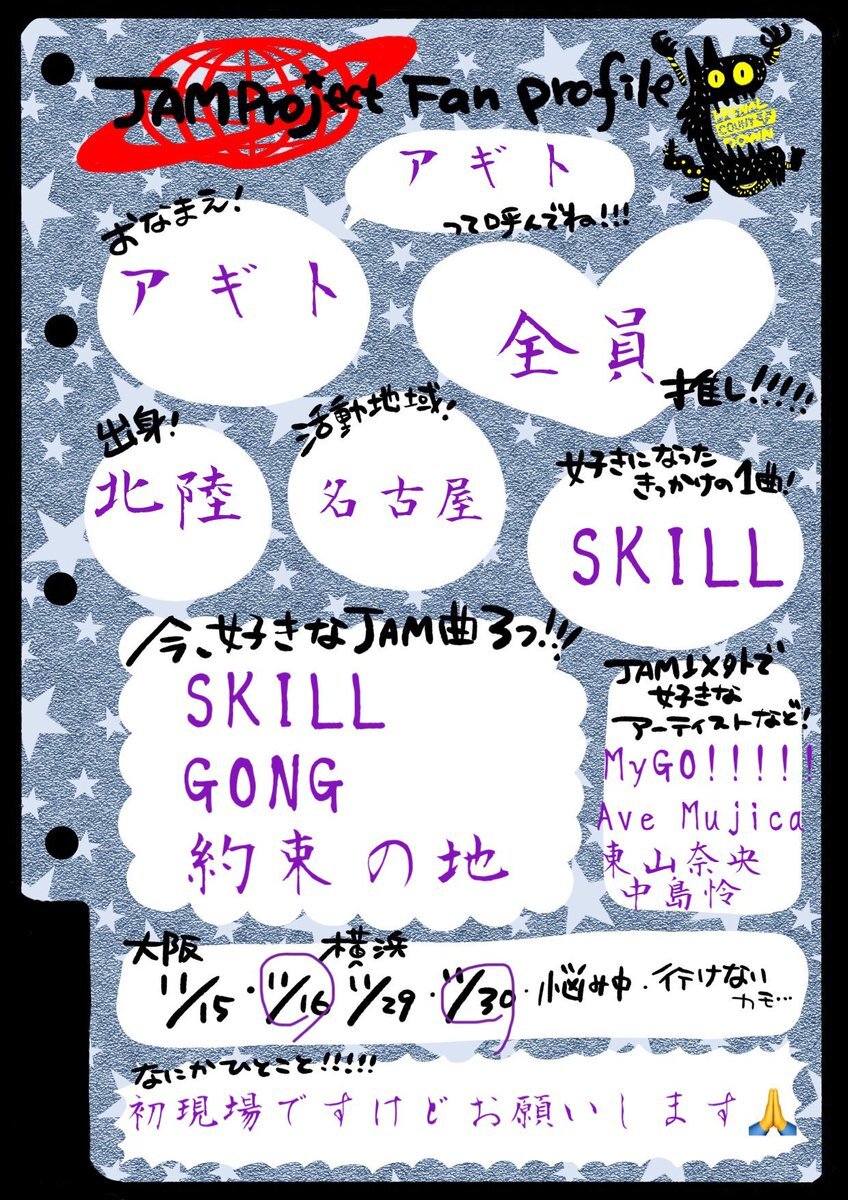 JAM Project Fan profile
アギト
って呼んでね!!!
おなまえ!
アギト
全員
推し!!!!!
出身!
北陸
活動地域!
名古屋
好きになった
きっかけの1曲!
SKILL
今、好きなJAM曲3つ!!!
SKILL
GONG
約束の地
JAM以外で
好きな
アーティストなど!
MyGO!!!!!
Ave Mujica
東山奈央
中島怜
大阪 横浜
11/15・11/16 11/29・11/30・悩み中・行けない
カモ…
なにかひとこと!!!!!
初現場ですけどお願いします🙏